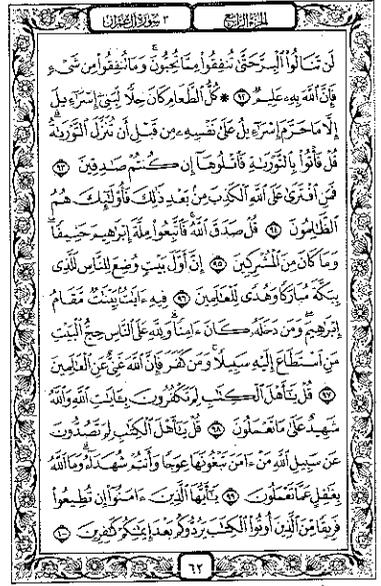 الجزء الرابع ٣ سورة آل عمران
لَن تَنَالُوا۟ ٱلْبِرَّ حَتَّىٰ تُنفِقُوا۟ مِمَّا تُحِبُّونَ ۚ وَمَا تُنفِقُوا۟ مِن شَىْءٍ
فَإِنَّ ٱللَّهَ بِهِۦ عَلِيمٌ ٩٢ ۞ كُلُّ ٱلطَّعَامِ كَانَ حِلًّا لِّبَنِىٓ إِسْرَٰٓءِيلَ
إِلَّا مَا حَرَّمَ إِسْرَٰٓءِيلُ عَلَىٰ نَفْسِهِۦ مِن قَبْلِ أَن تُنَزَّلَ ٱلتَّوْرَىٰةُ ۗ
قُلْ فَأْتُوا۟ بِٱلتَّوْرَىٰةِ فَٱتْلُوهَآ إِن كُنتُمْ صَٰدِقِينَ ٩٣
فَمَنِ ٱفْتَرَىٰ عَلَى ٱللَّهِ ٱلْكَذِبَ مِنۢ بَعْدِ ذَٰلِكَ فَأُو۟لَٰٓئِكَ هُمُ
ٱلظَّٰلِمُونَ ٩٤ قُلْ صَدَقَ ٱللَّهُ ۗ فَٱتَّبِعُوا۟ مِلَّةَ إِبْرَٰهِيمَ حَنِيفًا
وَمَا كَانَ مِنَ ٱلْمُشْرِكِينَ ٩٥ إِنَّ أَوَّلَ بَيْتٍ وُضِعَ لِلنَّاسِ لَلَّذِى
بِبَكَّةَ مُبَارَكًا وَهُدًى لِّلْعَٰلَمِينَ ٩٦ فِيهِ ءَايَٰتٌۢ بَيِّنَٰتٌ مَّقَامُ
إِبْرَٰهِيمَ ۖ وَمَن دَخَلَهُۥ كَانَ ءَامِنًا ۗ وَلِلَّهِ عَلَى ٱلنَّاسِ حِجُّ ٱلْبَيْتِ
مَنِ ٱسْتَطَاعَ إِلَيْهِ سَبِيلًا ۚ وَمَن كَفَرَ فَإِنَّ ٱللَّهَ غَنِىٌّ عَنِ ٱلْعَٰلَمِينَ
٩٧ قُلْ يَٰٓأَهْلَ ٱلْكِتَٰبِ لِمَ تَكْفُرُونَ بِـَٔايَٰتِ ٱللَّهِ وَٱللَّهُ
شَهِيدٌ عَلَىٰ مَا تَعْمَلُونَ ٩٨ قُلْ يَٰٓأَهْلَ ٱلْكِتَٰبِ لِمَ تَصُدُّونَ
عَن سَبِيلِ ٱللَّهِ مَنْ ءَامَنَ تَبْغُونَهَا عِوَجًا وَأَنتُمْ شُهَدَآءُ ۗ وَمَا ٱللَّهُ
بِغَٰفِلٍ عَمَّا تَعْمَلُونَ ٩٩ يَٰٓأَيُّهَا ٱلَّذِينَ ءَامَنُوٓا۟ إِن تُطِيعُوا۟
فَرِيقًا مِّنَ ٱلَّذِينَ أُوتُوا۟ ٱلْكِتَٰبَ يَرُدُّوكُم بَعْدَ إِيمَٰنِكُمْ كَٰفِرِينَ ١٠٠
٦٢